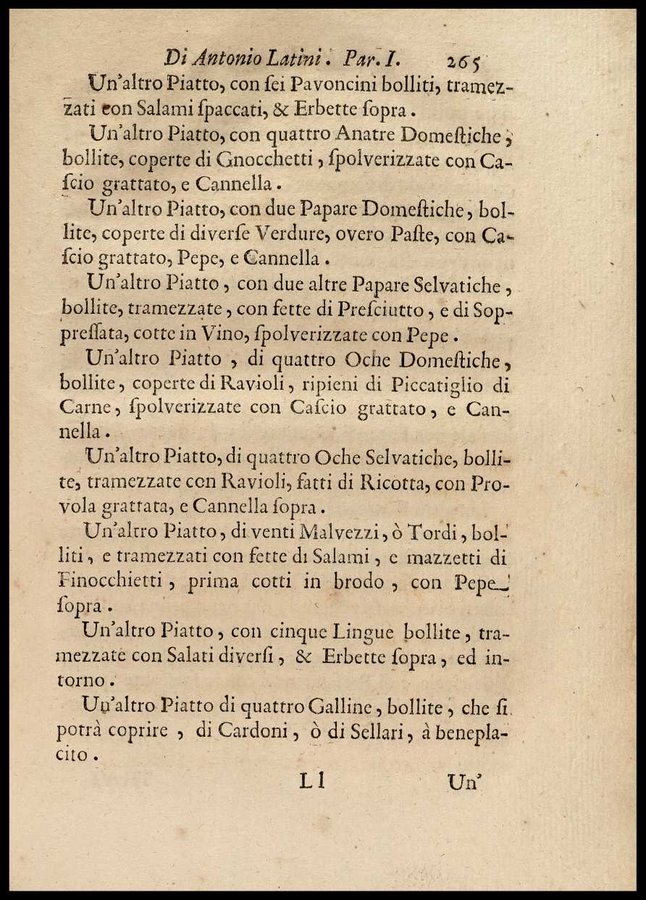 Di Antonio Latini. Par. I. 265
Un'altro Piatto, con ſei Pavoncini bolliti, tramez-
zati con Salami ſpaccati, & Erbette ſopra.
Un'altro Piatto, con quattro Anatre Domeſtiche,
bollite, coperte di Gnocchetti, ſpolverizzate con Ca-
ſcio grattato, e Cannella.
Un'altro Piatto, con due Papare Domeſtiche, bol-
lite, coperte di diverſe Verdure, overo Paſte, con Ca-
ſcio grattato, Pepe, e Cannella.
Un'altro Piatto, con due altre Papare Selvatiche,
bollite, tramezzate, con fette di Preſciutto, e di Sop-
preſſata, cotte in Vino, ſpolverizzate con Pepe.
Un'altro Piatto, di quattro Oche Domeſtiche,
bollite, coperte di Ravioli, ripieni di Piccatiglio di
Carne, ſpolverizzate con Caſcio grattato, e Can-
nella.
Un'altro Piatto, di quattro Oche Selvatiche, bolli-
te, tramezzate con Ravioli, fatti di Ricotta, con Pro-
vola grattata, e Cannella ſopra.
Un'altro Piatto, di venti Malvezzi, ò Tordi, bol-
liti, e tramezzati con fette di Salami, e mazzetti di
Finocchietti, prima cotti in brodo, con Pepe
ſopra.
Un'altro Piatto, con cinque Lingue bollite, tra-
mezzate con Salati diverſi, & Erbette ſopra, ed in-
torno.
Un'altro Piatto di quattro Galline, bollite, che ſi
potrà coprire, di Cardoni, ò di Sellari, à benepla-
cito.
Ll Un'